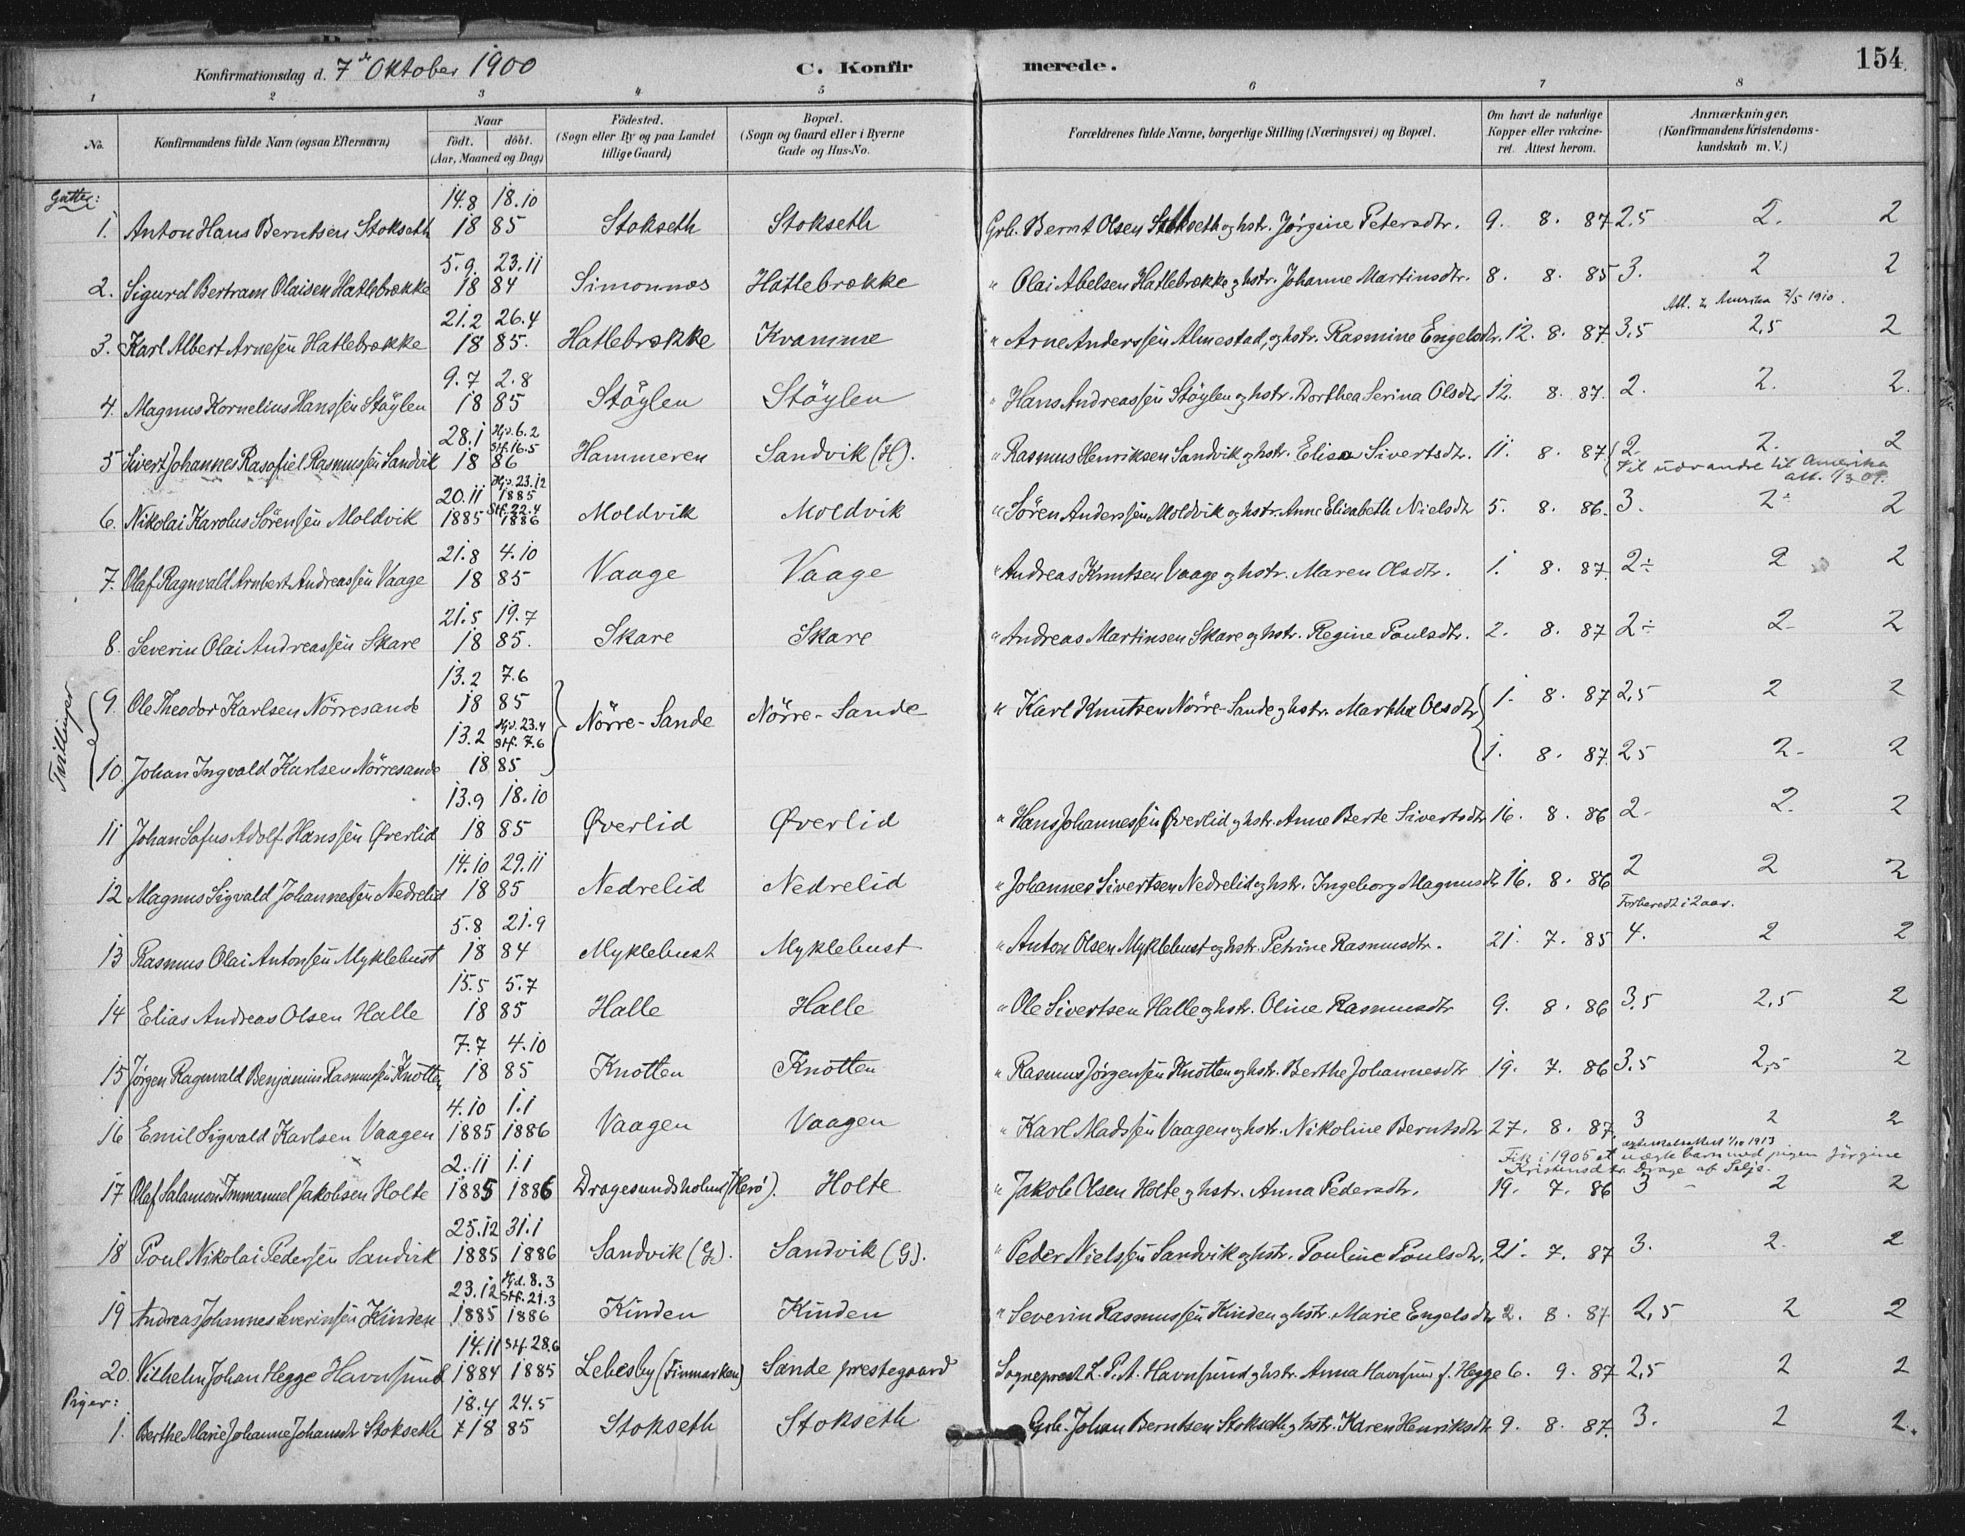 Konfirmationsdag d. 7de Oktober 1900 C. Konfirmerede. 154
1 2 3 4 5 6 7 8
No. Konfirmandens fulde Navn (ogsaa Efternavn) Naar födt. döbt. (Aar, Maaned og Dag) Födested. (Sogn eller By og paa Landet tillige Gaard) Bopæl. (Sogn og Gaard eller i Byerne Gade og Hus-No. Forældrenes fulde Navne, borgerlige Stilling (Næringsvei) og Bopæl. Om havt de naturlige Kopper eller vakcineret. Attest herom. Anmærkninger. (Konfirmandens Kristendomskundskab m. V.)
Gutter:
14.8 18.10
1. Anton Hans Berntsen Stokseth 18 85 Stokseth Stokseth Grb. Bernt Olsen Stokseth og hstr. Jørgine Petersdtr. 9. 8. 87 2,5 2. 2
5.9. 23.11
2. Sigurd Bertram Olaisen Hatlebrække 18 84 Simonnæs Hatlebrække " Olai Abelsen Hatlebrække og hstr. Johanne Martinsdtr. 8. 8. 85 3. 2 2
21.2 26.4 Att. t. Amerika 2/5 1910.
3. Karl Albert Arnesen Hatlebrække 18 85. Hatlebrække Kvamme " Arne Anderssen Almestad, og hstr. Rasmine Engelsdtr. 12. 8. 87 3,5 2,5 2
9.7 2.8
4. Magnus Kornelius Hanssen Stöylen 18 85 Stöylen Stöylen " Hans Andreassen Stöylen og hstr. Dorthea Serina Olsdtr 12. 8. 87. 2. 2. 2.
28.1 Hjd. 6.2 Stf. 16.5
5 Sivert Johannes Rasofiel Rasmussen Sandvik 18 86 Hammeren Sandvik (H). " Rasmus Henriksen Sandvik og hstr. Elisa Sivertsdtr. 11. 8. 87 2 2. 2
Til udvandr. til Amerika
20.11 Hjd. 23.12 1885 Stf. 22.4
6. Nikolai Karolus Sørensen Moldvik 1885 1886 Moldvik Moldvik " Søren Anderssen Moldvik og hstr. Anne Elisabeth Nielsdtr 5. 8. 86. 3. 2÷ 2
21.8 4.10
7. Olaf Ragnvald Arnbert Andreassen Vaage 18 85 Vaage Vaage " Andreas Knutsen Vaage og hstr. Maren Olsdtr. 1. 8. 87. 2÷ 2 2
21.5 19.7
8. Severin Olai Andreassen Skare 18 85. Skare Skare " Andreas Martinsen Skare og hstr. Regine Poulsdtr. 2. 8. 87 2÷ 2- 2
13.2 7.6
Tvillinger
9. Ole Theodor Karlsen Nörresande 18 85 Nörre-Sande Nörre-Sande " Karl Knutsen Nörre-Sande og hstr. Marthe Olsdtr 1. 8. 87 2,5 2 2
13.2 Hjd. 23.4 Stf. 7.6
10. Johan Ingvald Karlsen Nörresande 18 85 1. 8. 87. 2,5 2- 2
13.9 18.10
11 Johan Sofus Adolf Hanssen Øverlid 18 85 Øverlid Øverlid " Hans Johannessen Øverlid og hstr. Anne Berte Sivertsdtr 16. 8. 86 2- 2. 2
14.10 29.11
12 Magnus Sigvald Johannessen Nedrelid 18 85 Nedrelid Nedrelid " Johannes Sivertsen Nedrelid og hstr. Ingeborg Magnusdtr 16. 8. 86 2 2 2
5.8 21.9 Forberedt i 2 aar.
13 Rasmus Olai Antonsen Myklebust 18 84 Myklebust Myklebust " Anton Olsen Myklebust og hstr. Petrine Rasmusdtr. 21. 7. 85 4. 2 2
15.5 5.7
14 Elias Andreas Olsen Halle 18 85 Halle Halle " Ole Sivertsen Halle og hstr. Oline Rasmusdtr 9. 8. 86 3,5 2,5 2
7.7 4.10
15 Jørgen Ragnvald Benjamin Rasmussen Knotten 18 85 Knotten Knotten " Rasmus Jørgensen Knotten og hstr. Berthe Johannesdtr 19. 7. 86 3,5 2,5 2
4.10 1.1
16 Emil Sigvald Karlsen Vaagen 1885 1886 Vaagen Vaagen " Karl Madssen Vaagen og hstr. Nikoline Berntsdtr 27. 8. 87. 3 2 2
1/10 1913
2.11 1.1 Fik i 1905 et uægte barn med pigen Jörgine Kristensdtr. Drage af Selje.
17 Olaf Salamon Immanuel Jakobsen Holte 1885 1886 Dragesundsholmen (Herö). Holte " Jakob Olsen Holte og hstr. Anna Pedersdtr. 19. 7. 86 3 - 2 2
25.12 31.1
18 Poul Nikolai Pedersen Sandvik 1885 1886 Sandvik (G). Sandvik (G). " Peder Nielssen Sandvik og hstr. Pouline Poulsdtr. 21. 7. 87 3. 2. 2
23.12 Hjd. 8.3 Stf. 21.3
19 Andreas Johannes Severinsen Kinden 1885 1886 Kinden Kinden " Severin Rasmussen Kinden og hstr. Marie Engelsdtr 2. 8. 87. 2,5 2 2
14.11 Stf. 28.6
20. Vilhelm Johan Hegge Havnsund 1884 1885 Lebesby (Finmarken) Sande prestegaard Sogneprest L. P. A. Havnsund og hstr. Anna Havnsund f. Hegge 6. 9. 87 2,5 2 2
Piger: 18.4 24.5
1. Berthe Marie Johanne Johansdtr Stokseth 18 85 Stokseth Stokseth Grb. Johan Berntsen Stokseth og hstr. Karen Henriksdtr 9. 8. 87. 3. 2 2.